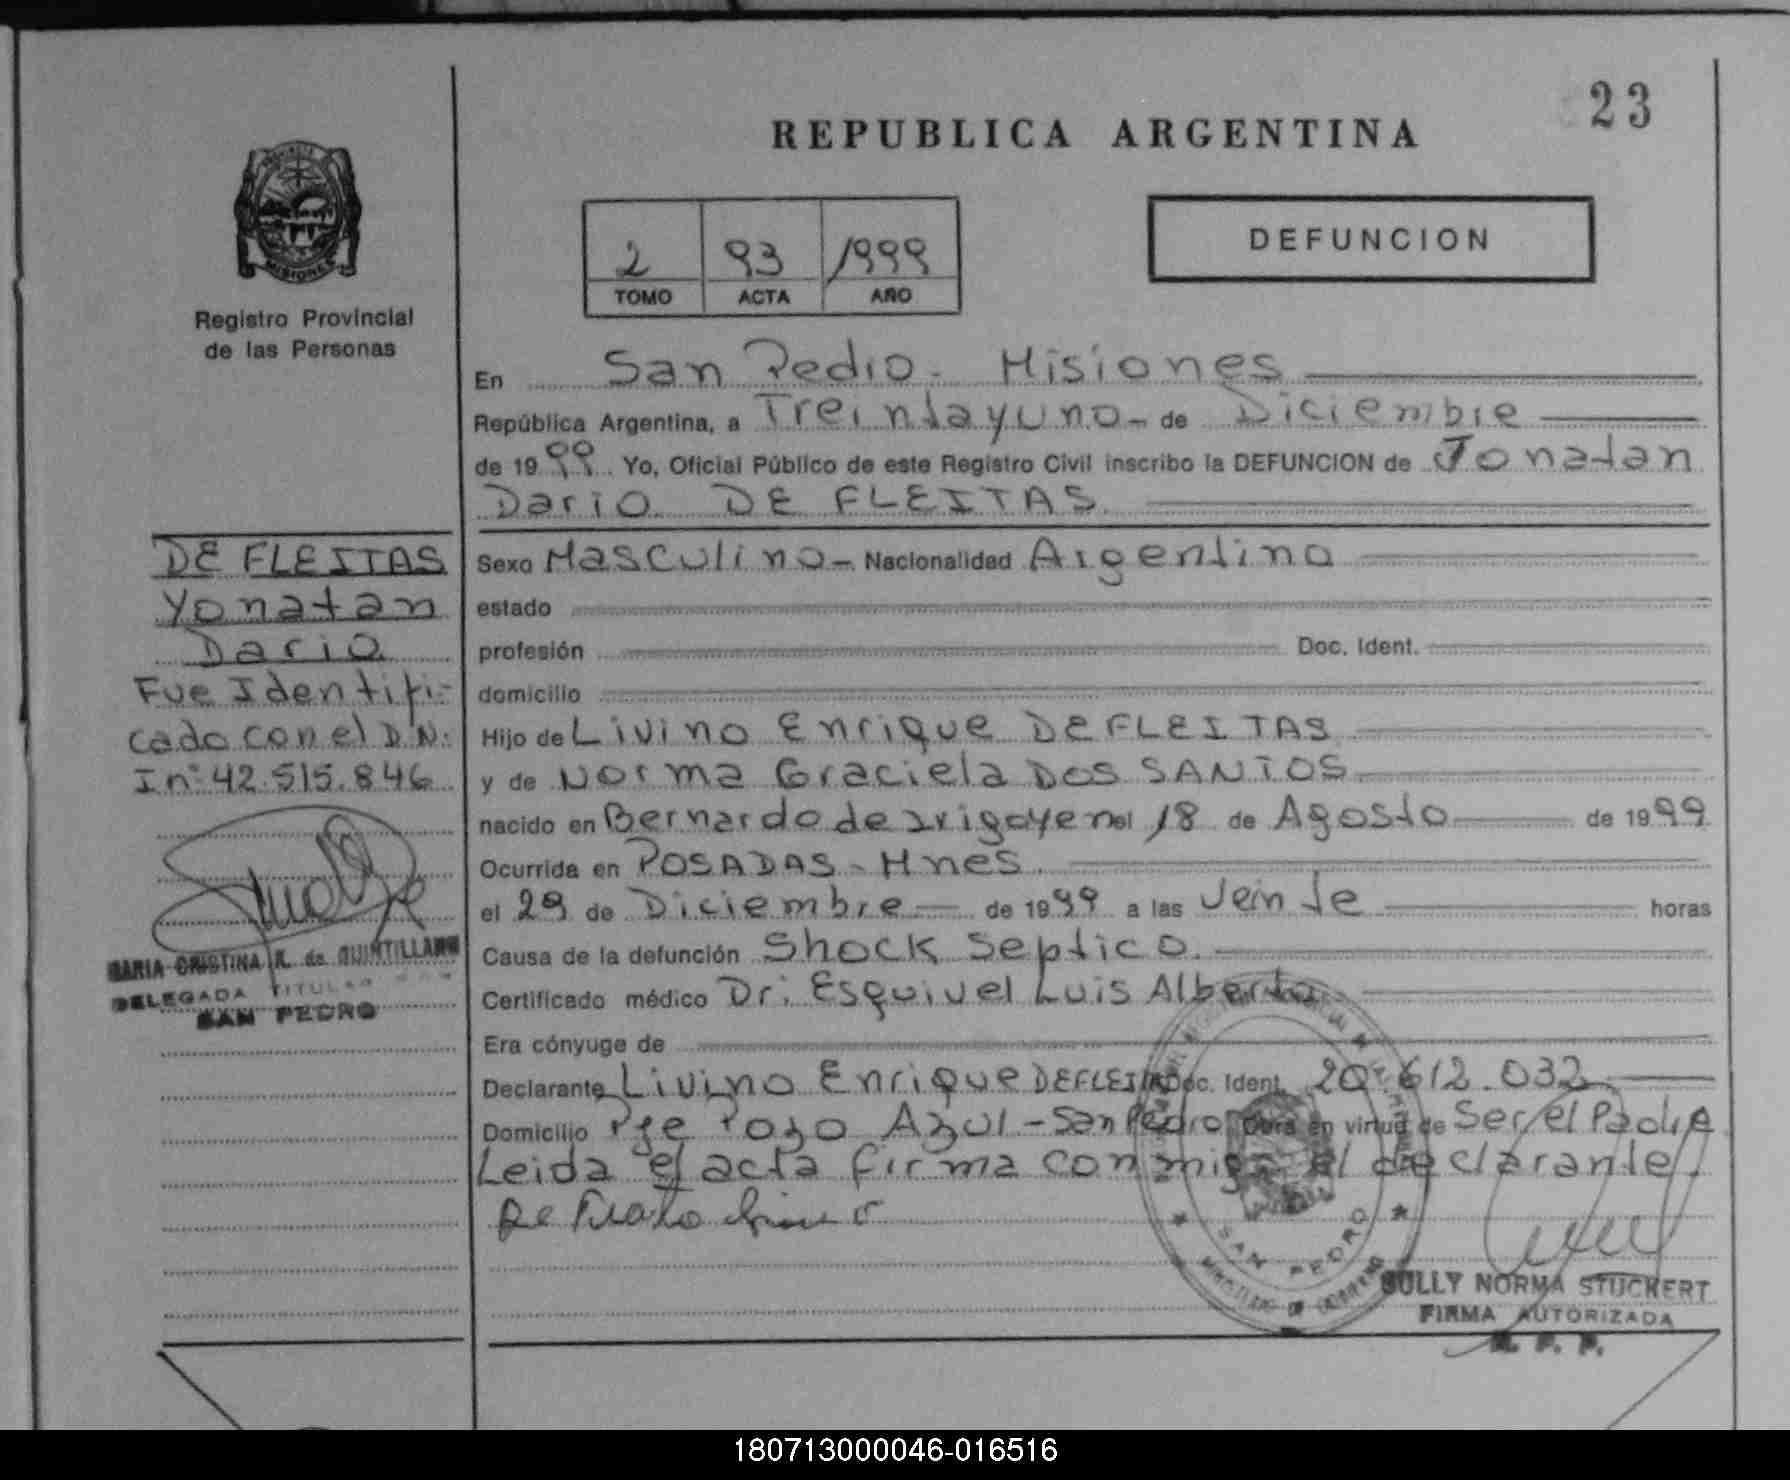 23
REPUBLICA ARGENTINA
DEFUNCION
2 93 1999
TOMO ACTA AÑO
MISIONES
Registro Provincial
de las Personas
En San Pedro - Misiones
República Argentina, a Treintayuno - de Diciembre
de 1999 Yo, Oficial Público de este Registro Civil inscribo la DEFUNCION de Jonatan
Dario DE FLEITAS
Sexo Masculino - Nacionalidad Argentino
estado
profesión Doc. Ident.
domicilio
Hijo de Livino Enrique DE FLEITAS
y de Norma Graciela DOS SANTOS
nacido en Bernardo de Irigoyen el 18 de Agosto de 1999
Ocurrida en POSADAS - Mnes.
el 29 de Diciembre de 1999 a las Veinte horas
Causa de la defunción Shock Septico.
Certificado médico Dr. Esquivel Luis Alberto
Era cónyuge de
Declarante Livino Enrique DE FLEITAS Doc. Ident. 20.612.032
Domicilio Pje Pozo Azul - San Pedro Obra en virtud de Ser el Padre
Leida el acta firma conmigo el declarante.
DE FLEITAS
Yonatan
Dario
Fue Identifi-
cado con el D.N.
I nº 42.515.846
MARIA CRISTINA R. de QUINTILLAN
DELEGADA TITULAR
SAN PEDRO
SAN PEDRO
MINISTERIO DE GOBIERNO
SULLY NORMA STUCKERT
FIRMA AUTORIZADA
R. P. P.
180713000046-016516